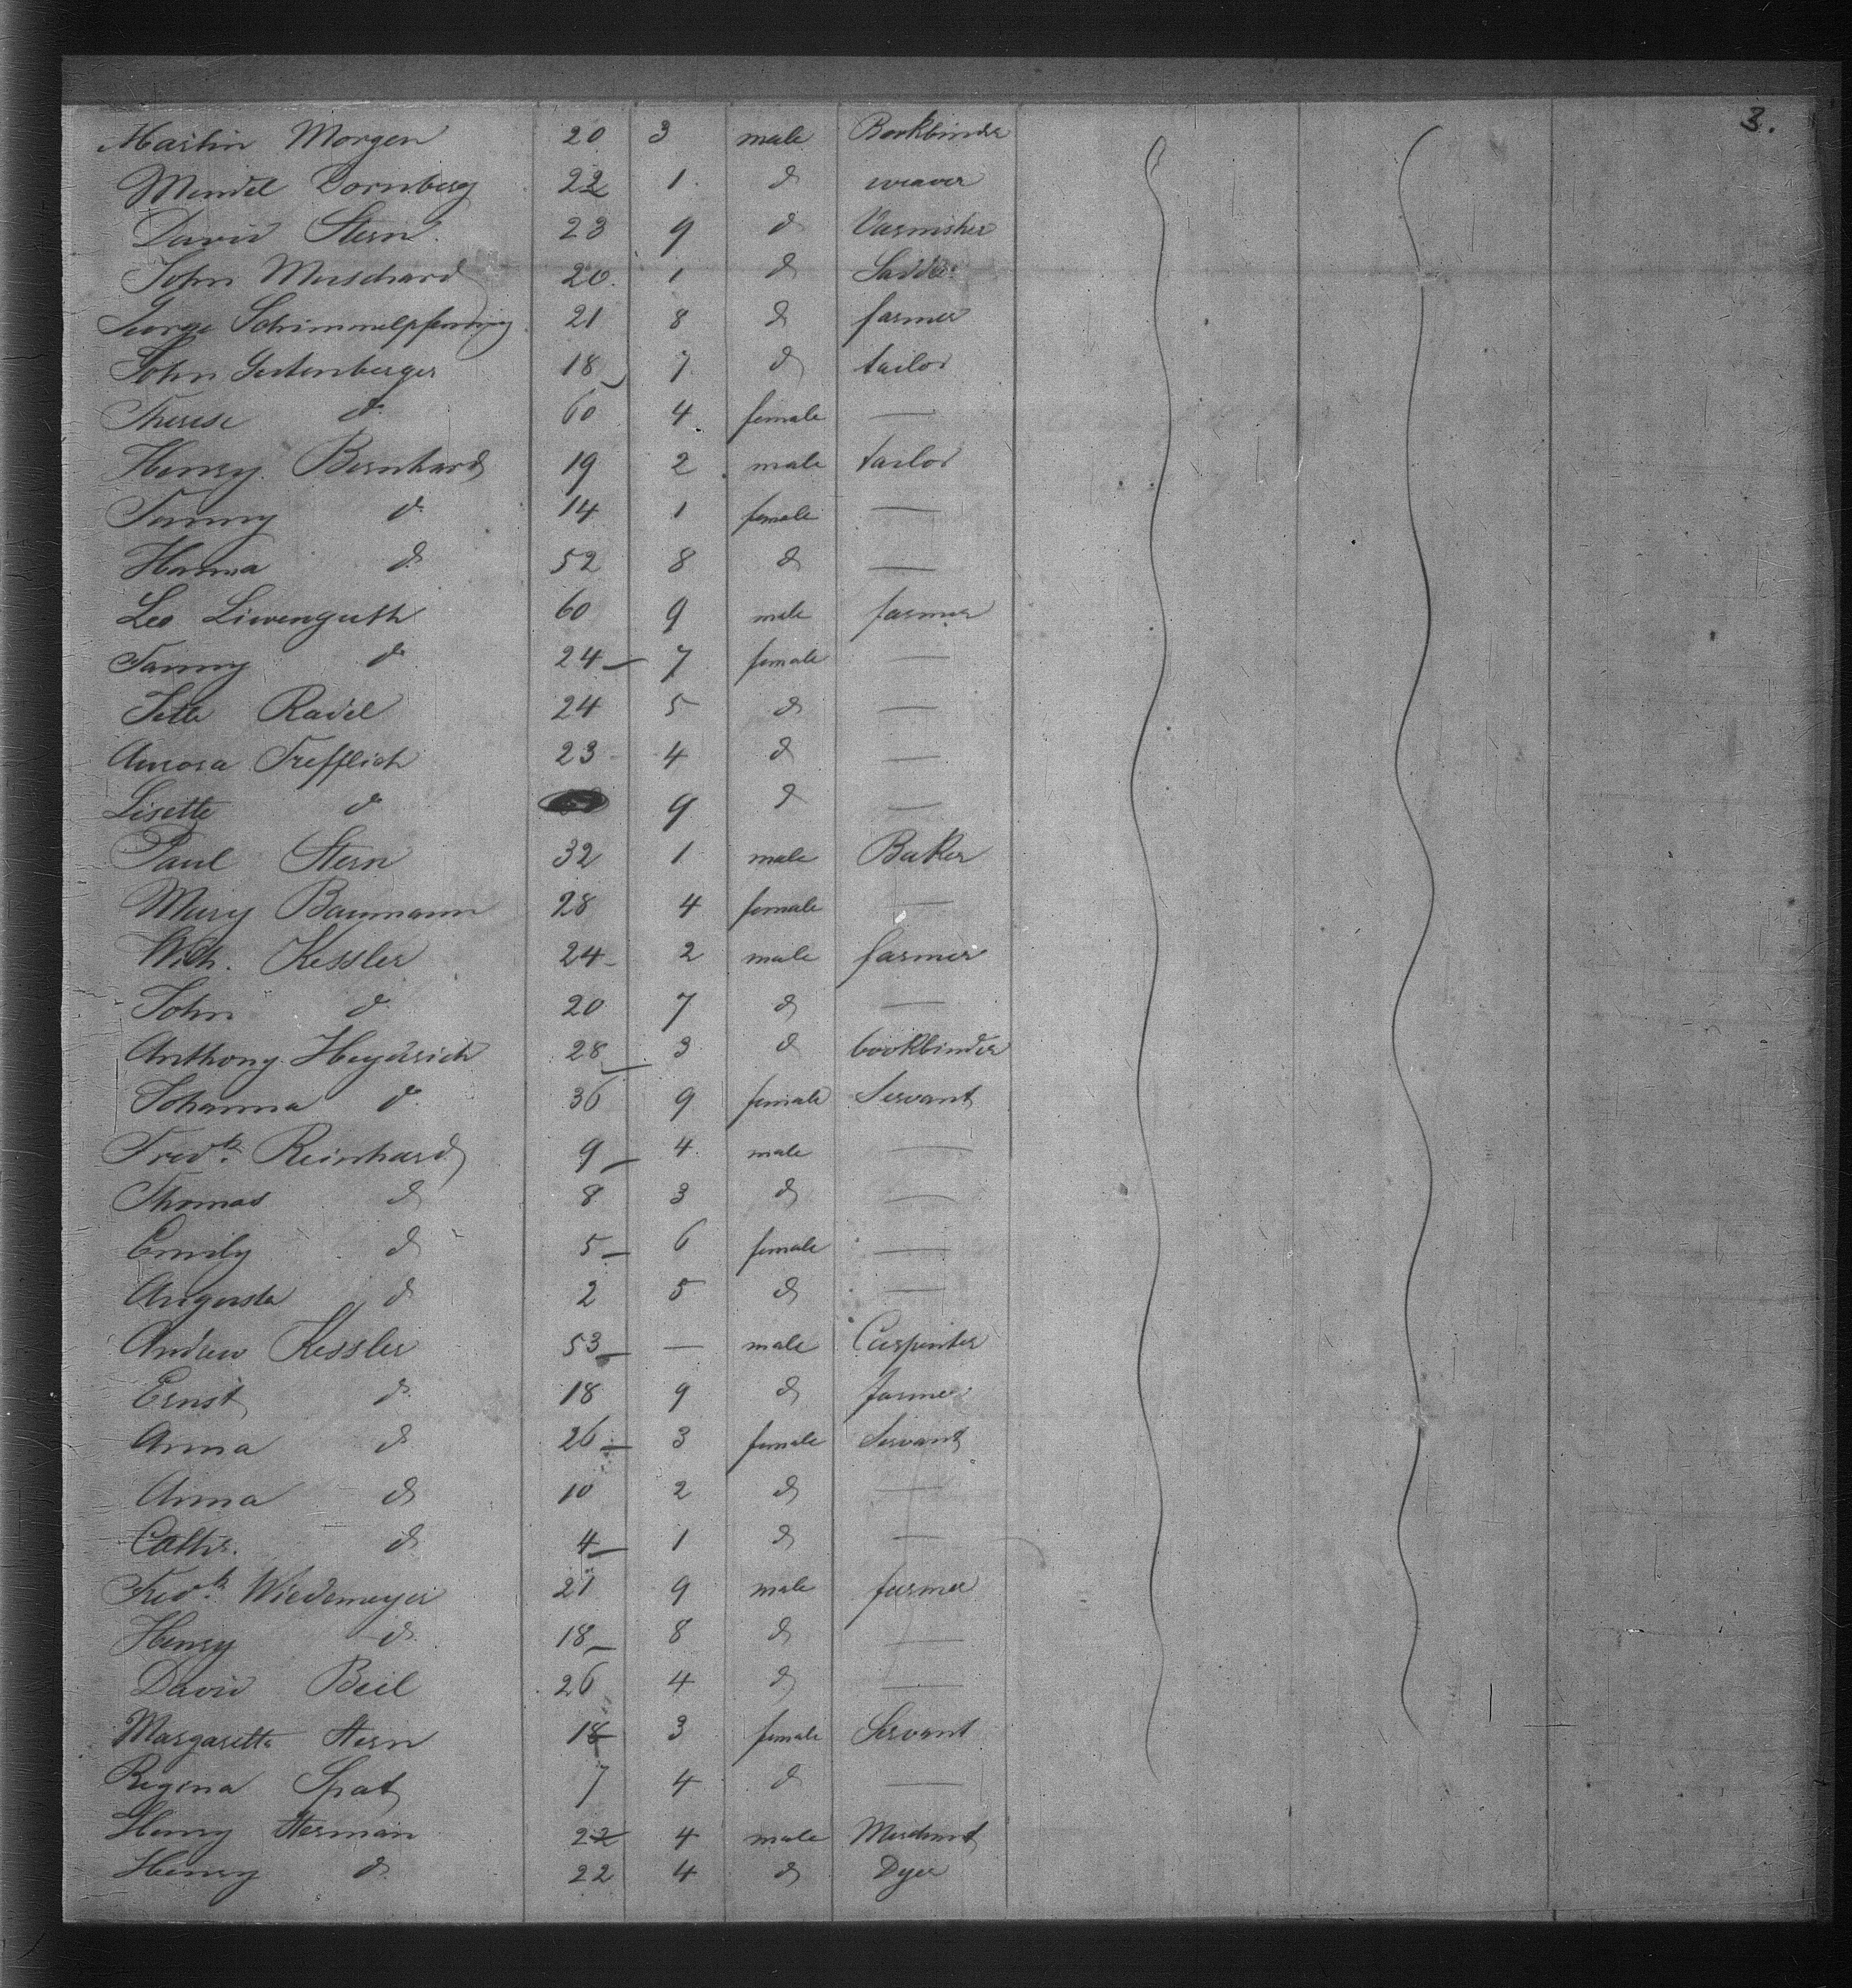 3.
Martin Morgen 20 3 male Bookbinder
Mendel Dornberg 22 1 do weaver
David Stern 23 9 do Varnisher
John Muschard 20 1 do Saddler
George Schimmelpfennig 21 8 do farmer
John Gutenberger 18 7 do tailor
Therese do 60 4 female —
Henry Bernhard 19 2 male tailor
Fanny do 14 1 female —
Hanna do 52 8 do —
Leo Liwenguth 60 9 male farmer
Fanny do 24 7 female —
Jette Radel 24 5 do —
Aurora Trefflich 23 4 do —
Lisette do 9 do —
Paul Stern 32 1 male Baker
Mary Baumann 28 4 female —
Wilh. Kessler 24 2 male farmer
John do 20 7 do —
Anthony Heydrich 28 3 do bookbinder
Johanna do 36 9 female Servant
Fredk. Reinhard 9 4 male —
Thomas do 8 3 do —
Emily do 5 6 female —
Augusta do 2 5 do —
Andrew Kessler 53 — male Carpenter
Ernst do 18 9 do farmer
Anna do 26 3 female Servant
Anna do 10 2 do —
Cathr. do 4 1 do —
Fredk. Wiedemeyer 21 9 male farmer
Henry do 18 8 do —
David Beil 26 4 do —
Margaretta Stern 18 3 female Servant
Regina Spat 7 4 do —
Henry Herman 22 4 male Merchant
Henry do 22 4 do Dyer